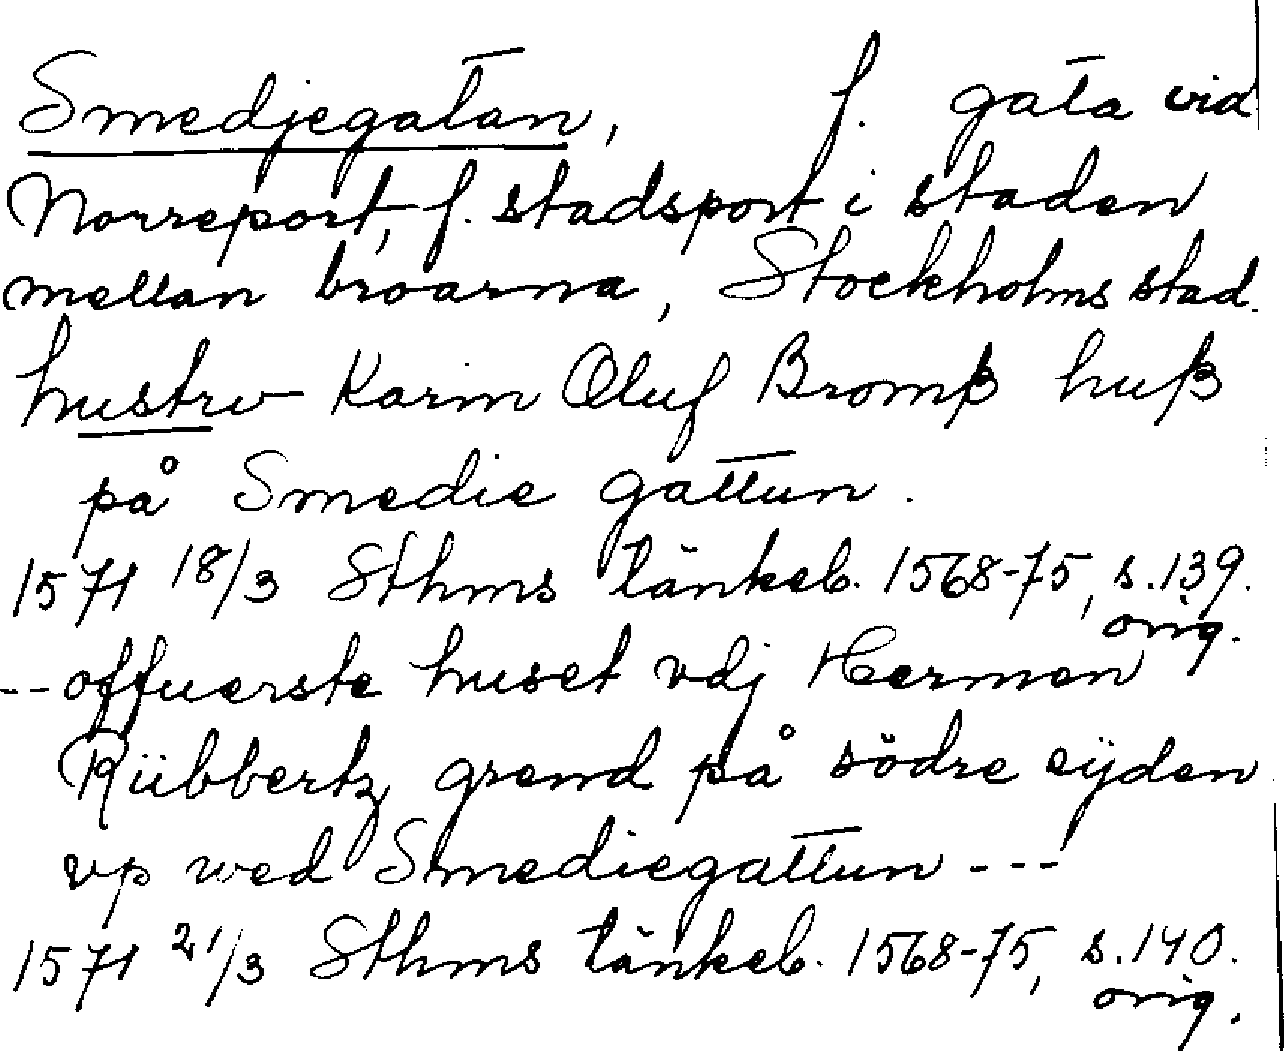 Smedjegatan, f. gata vid
Norreport, f. stadsport i staden
mellan broarna, Stockholms stad.
hustrv Karin Oluf Bromß huß
på Smedie gattun.
1571 18/3 Sthms tänkeb. 1568-75, s.139.
orig.
-- offuerste huset vdj Hermen
Rübbertz grend på södre sijden
vp wed Smediegattun ---
1571 21/3 Sthms tänkeb. 1568-75, s.140.
orig.